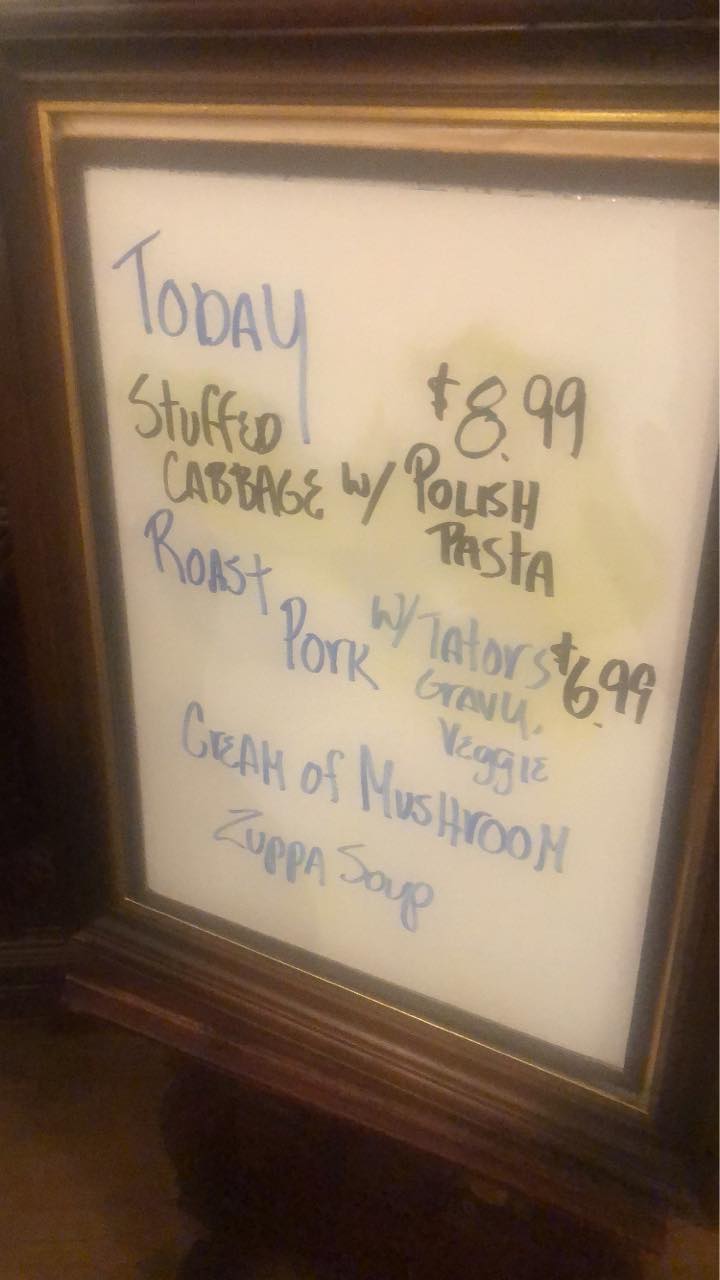 TODAY
Stuffed $8.99
CABBAGE w/ POLISH
PASTA
ROAST
PORK w/TATORS $6.99
GRAVY,
VEGGIE
CREAM of MUSHROOM
ZUPPA Soup